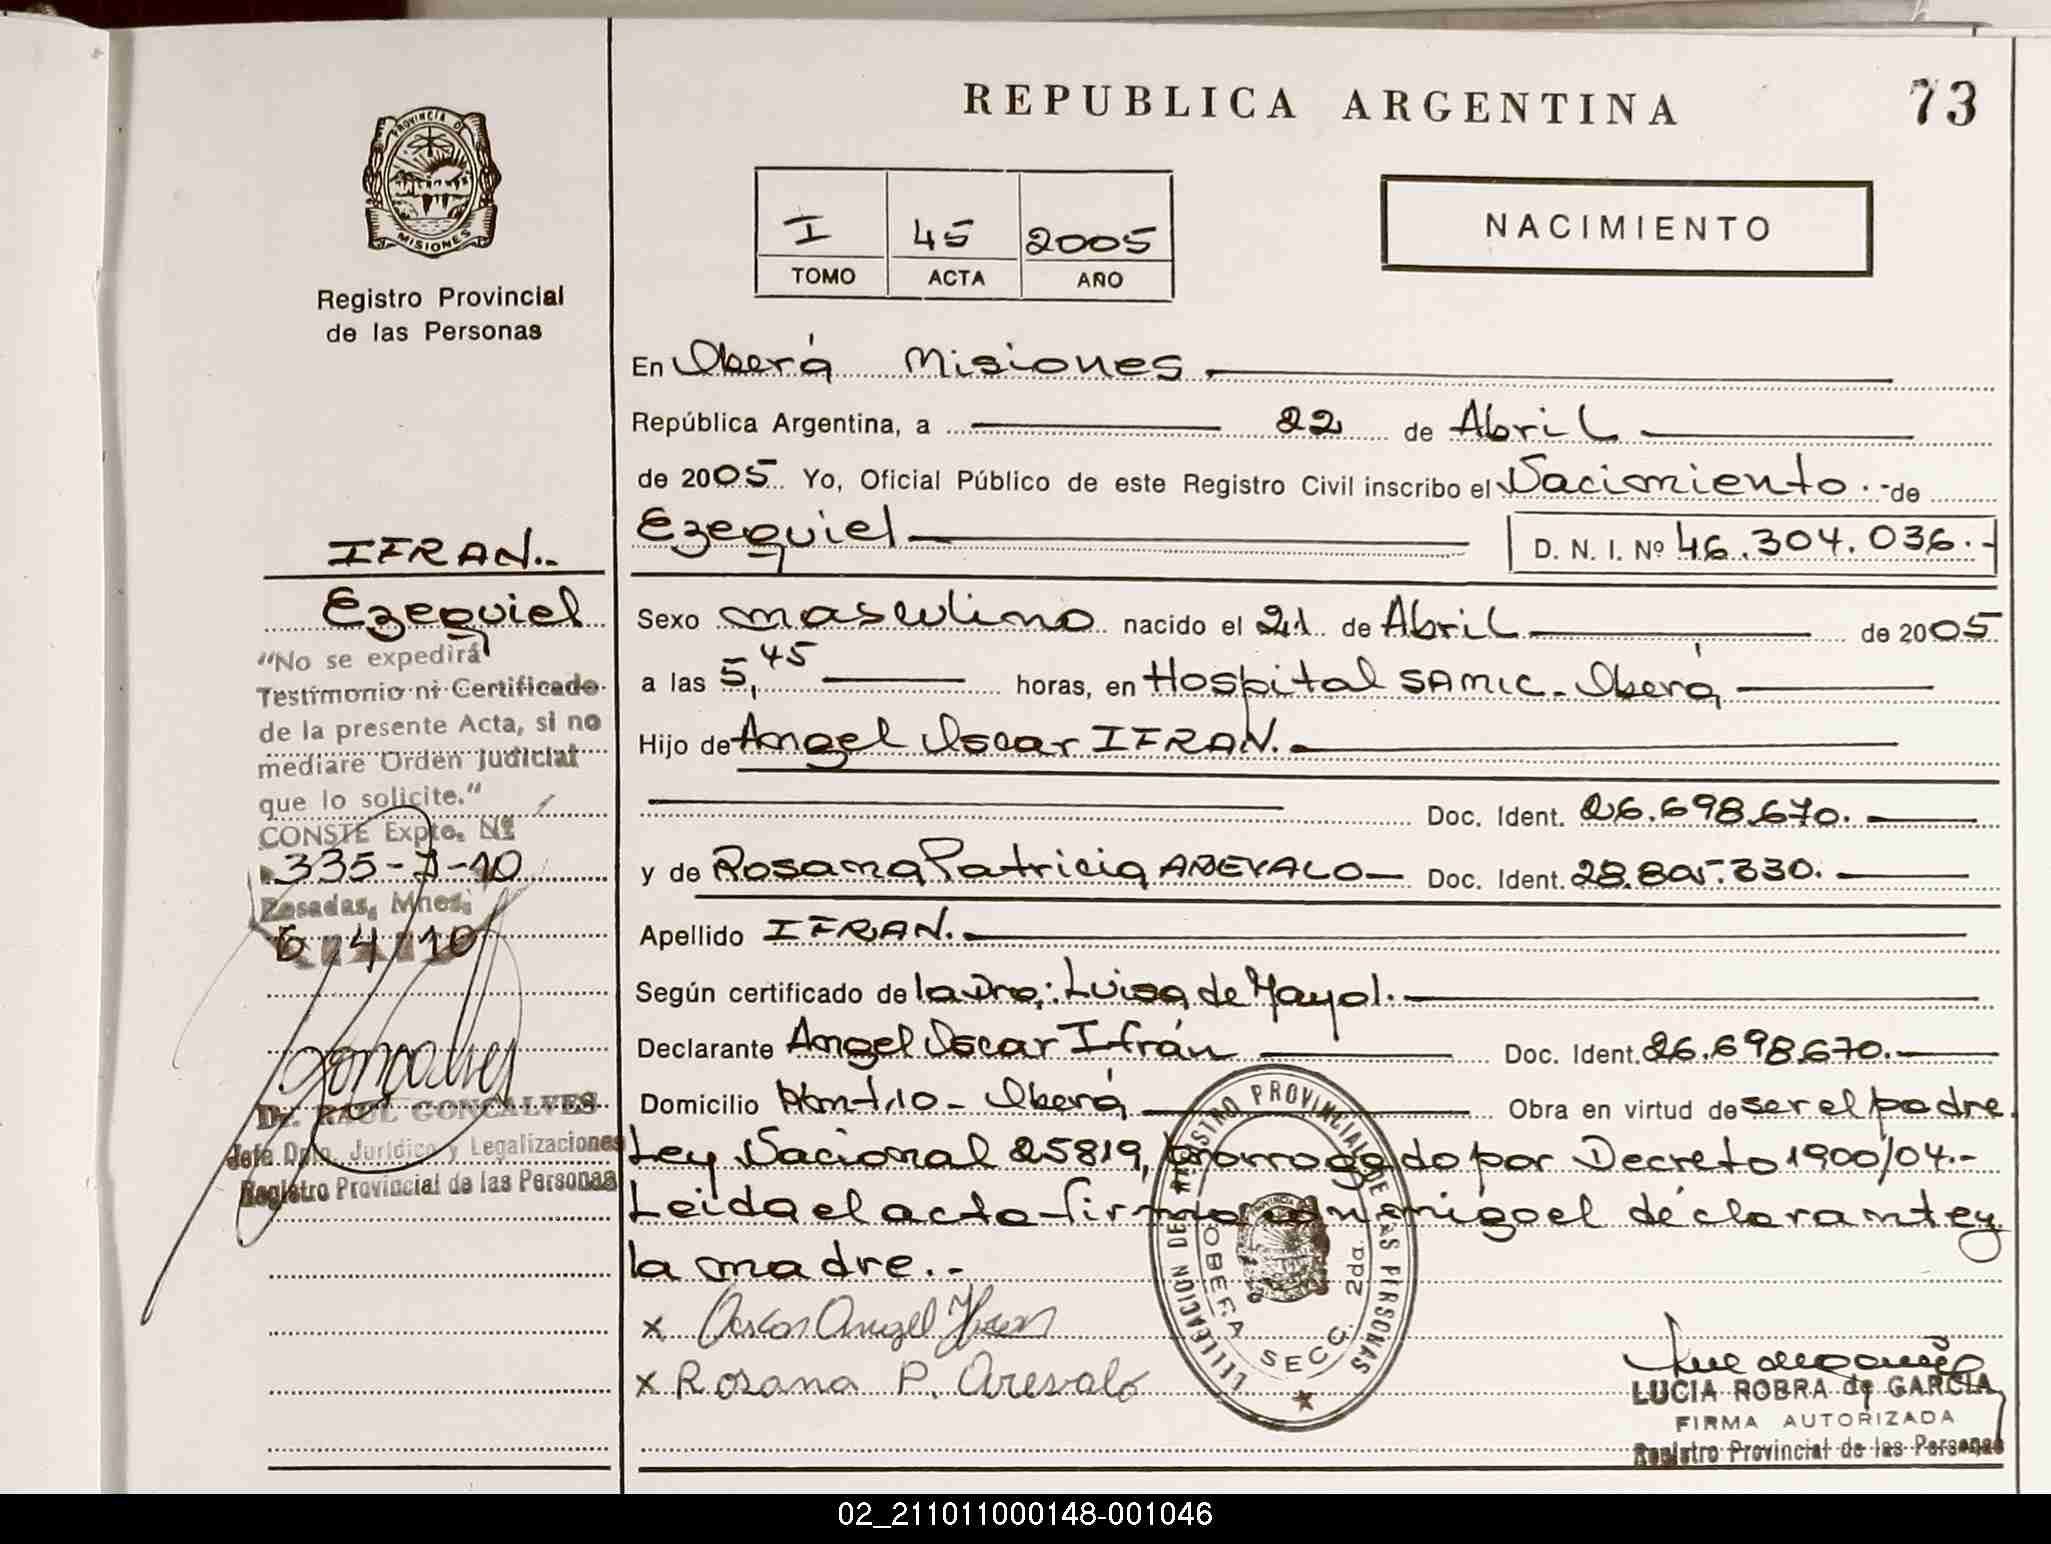 REPUBLICA ARGENTINA
73
PROVINCIA D
MISIONES
Registro Provincial
de las Personas
I 45 2005
TOMO ACTA AÑO
NACIMIENTO
En Oberá Misiones
República Argentina, a 22 de Abril
de 2005 Yo, Oficial Público de este Registro Civil inscribo el Nacimiento.- de
Ezequiel D. N. I. Nº 46.304.036.-
Sexo masculino nacido el 21 de Abril de 2005
a las 5,45 horas, en Hospital SAMIC - Oberá
Hijo de Angel Oscar IFRAN.
Doc. Ident. 26.698.670.
y de Rosana Patricia AREVALO Doc. Ident. 28.805.330.
Apellido IFRAN.
Según certificado de la Dra: Luisa de Mayol.
Declarante Angel Oscar Ifrán Doc. Ident. 26.698.670.
Domicilio - Oberá Obra en virtud de ser el padre
Ley Nacional 25819, prorrogado por Decreto 1900/04.-
Leida el acta firma conmigo el declarante y
la madre.-
x Oscar Angel Ifran
x Rosana P. Arevalo
DELEGACION DEL REGISTRO PROVINCIAL DE LAS PERSONAS
OBERA SECC. 2da.
LUCIA ROBRA de GARCIA
FIRMA AUTORIZADA
Registro Provincial de las Personas
IFRAN.-
Ezequiel
"No se expedirá
Testimonio ni Certificado
de la presente Acta, si no
mediare Orden Judicial
que lo solicite."
CONSTE Expte. Nº
335-I-10
Posadas, Mnes.
6 4 10
Goncalves
Dr. RAUL GONCALVES
Jefe Dpto. Jurídico y Legalizaciones
Registro Provincial de las Personas
02_211011000148-001046